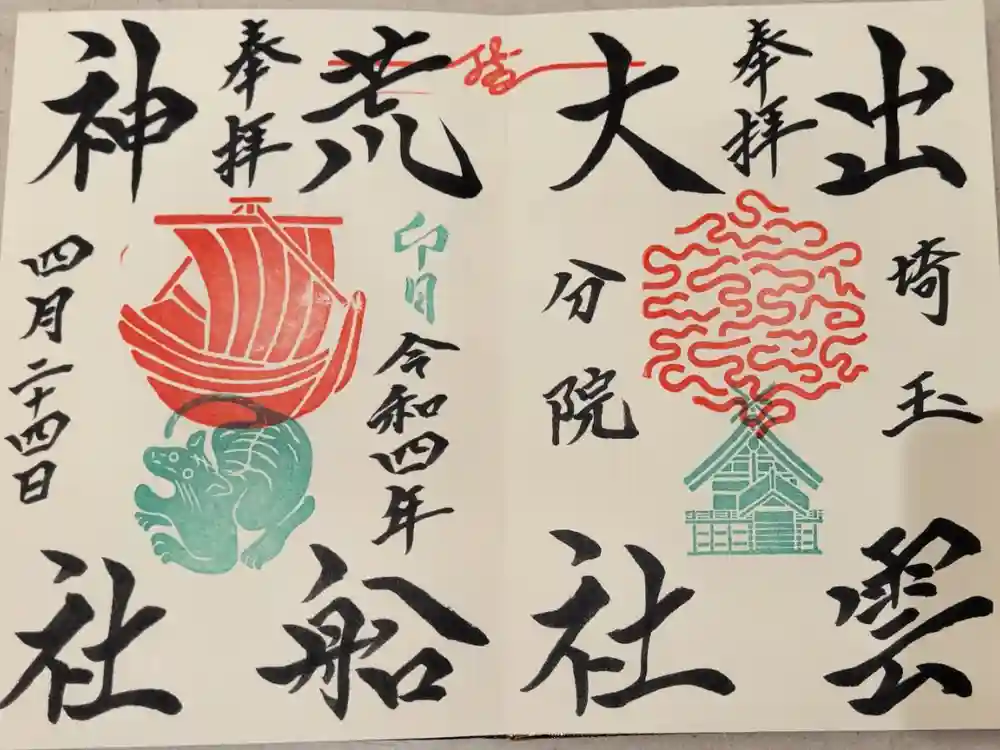 出雲
奉拝
埼玉
大社
分院
荒船
奉拝
卯月
令和四年
神社
四月二十四日